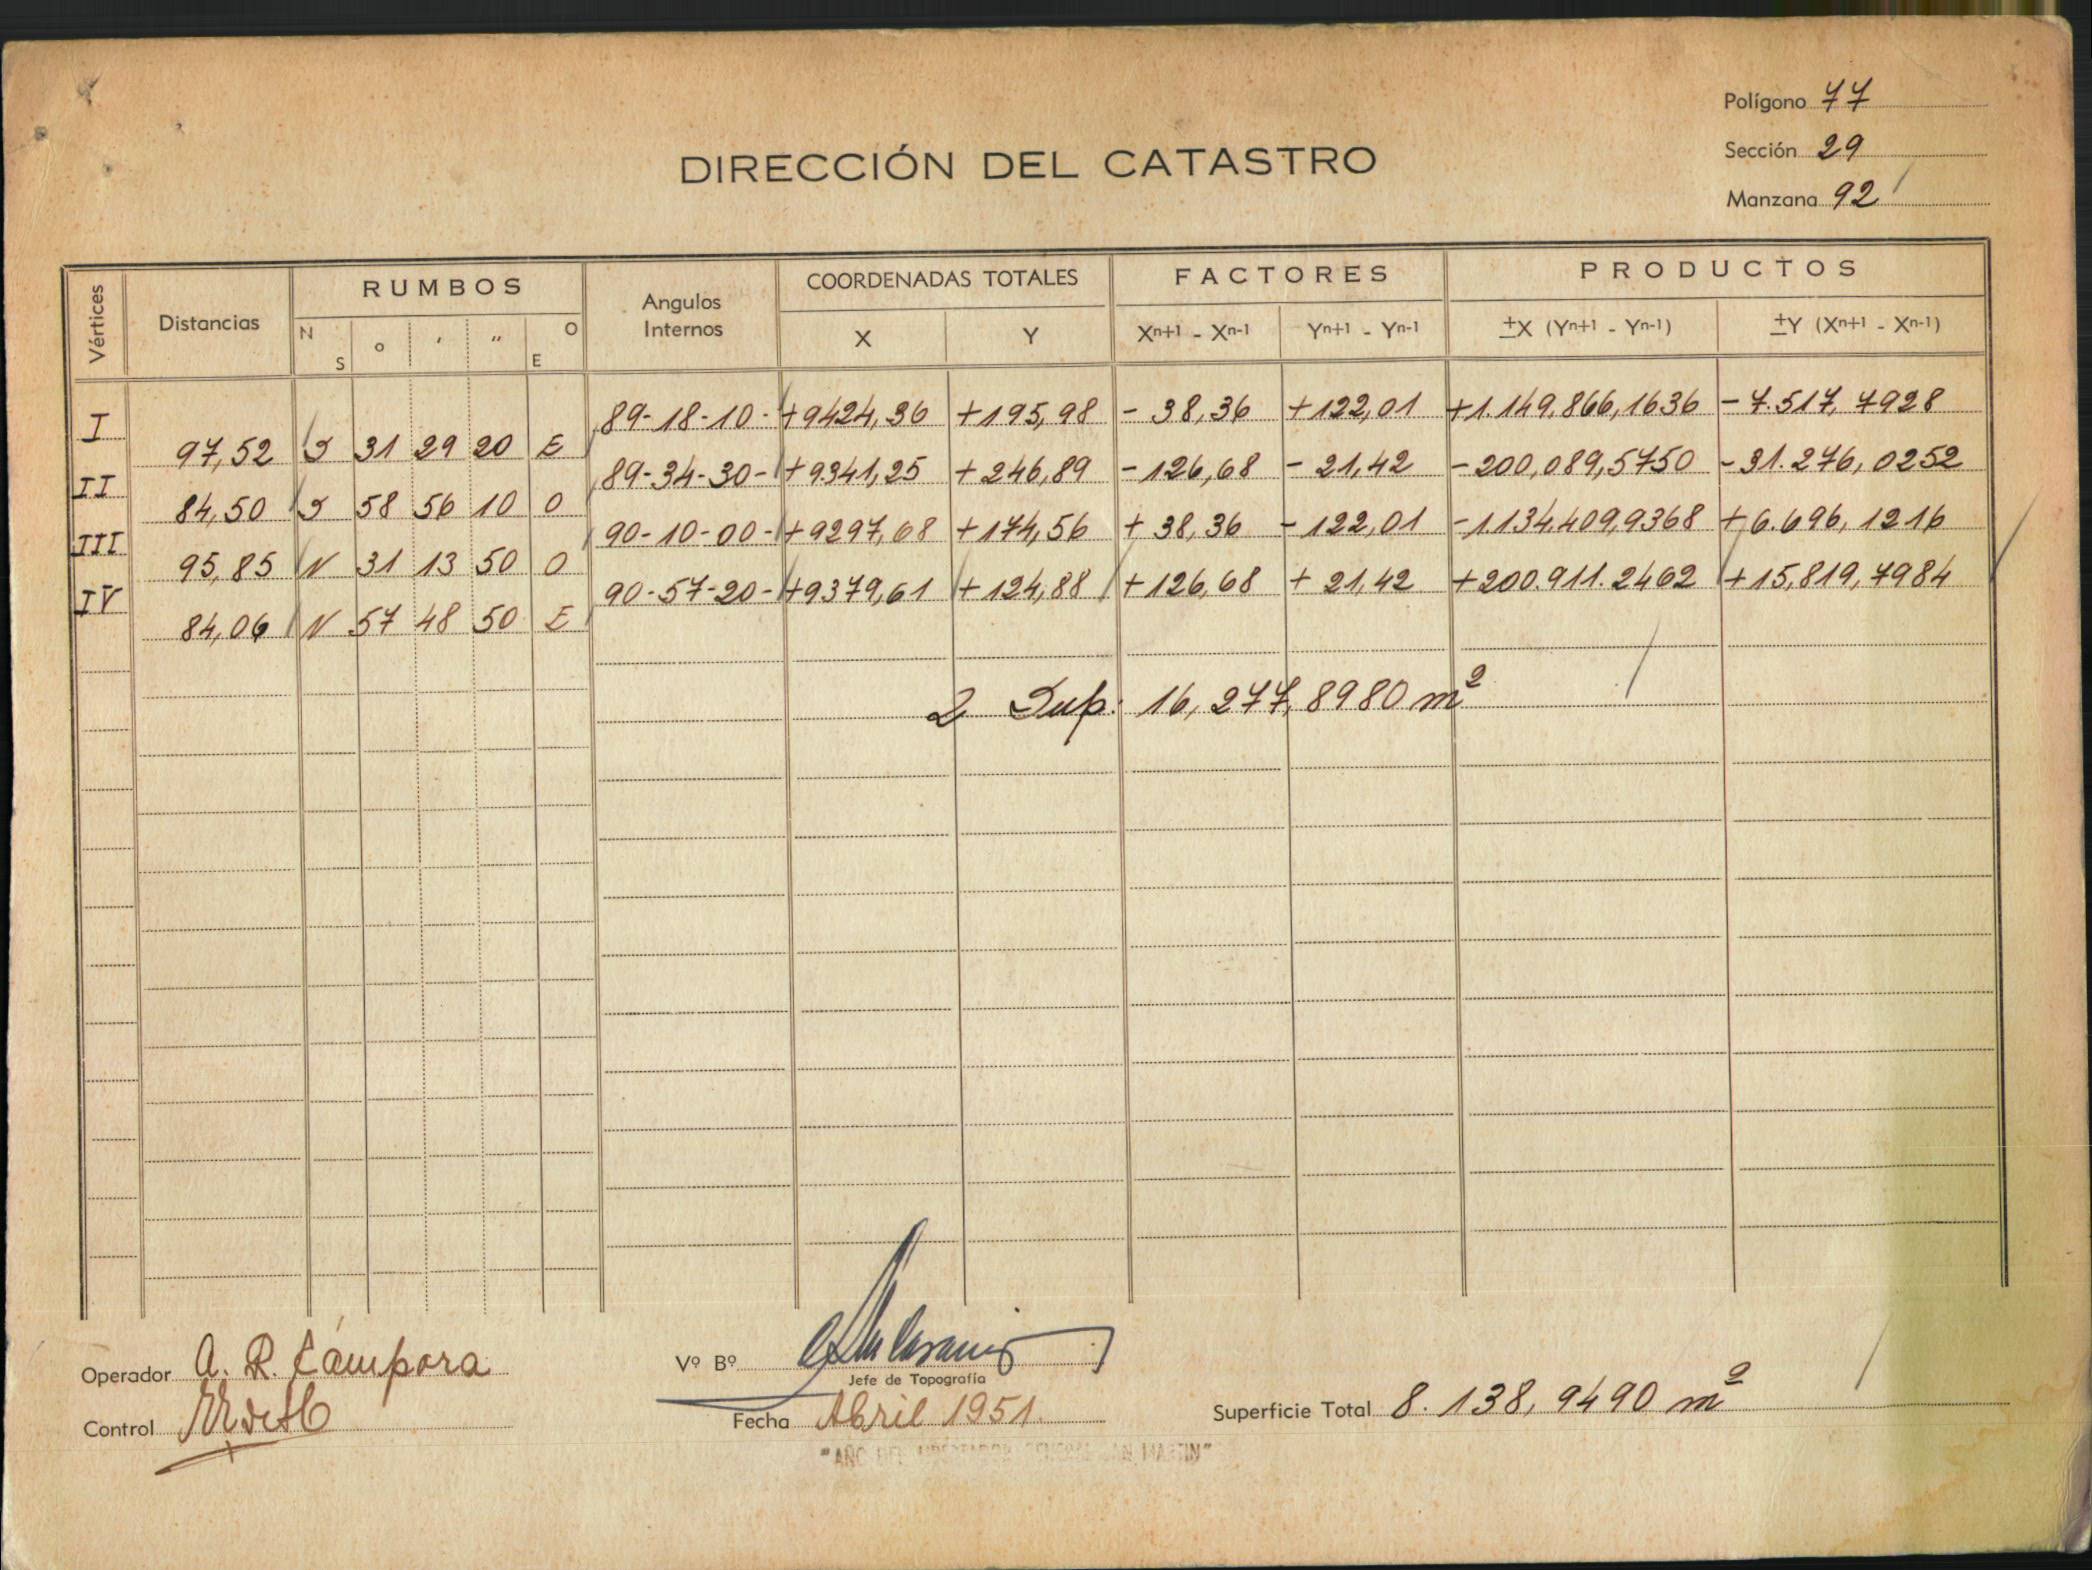 Polígono 77
Sección 29
Manzana 92
DIRECCIÓN DEL CATASTRO
Vértices Distancias RUMBOS Angulos Internos COORDENADAS TOTALES FACTORES PRODUCTOS
N S o ' " O E X Y Xn+1 - Xn-1 Yn+1 - Yn-1 ±X (Yn+1 - Yn-1) ±Y (Xn+1 - Xn-1)
I 89-18-10- +9424,36 +195,98 - 38,36 +122,01 +1.149.866,1636 - 7.517,7928
97,52 S 31 29 20 E
II 89-34-30- +9341,25 +246,89 - 126,68 - 21,42 - 200,089,5750 - 31.276,0252
84,50 S 58 56 10 O
III 90-10-00- +9297,68 +174,56 + 38,36 - 122,01 -1134.409,9368 + 6.696,1216
95,85 N 31 13 50 O
IV 90-57-20- +9379,61 +124,88 +126,68 + 21,42 +200.911.2462 +15,819,7984
84,06 N 57 48 50 E
2 Sup: 16,277,8980 m²
Operador A. R. Cámpora
Vº Bº
Jefe de Topografía
Control
Fecha Abril 1951.
Superficie Total 8.138,9490 m²
"AÑO DEL LIBERTADOR GENERAL SAN MARTIN"